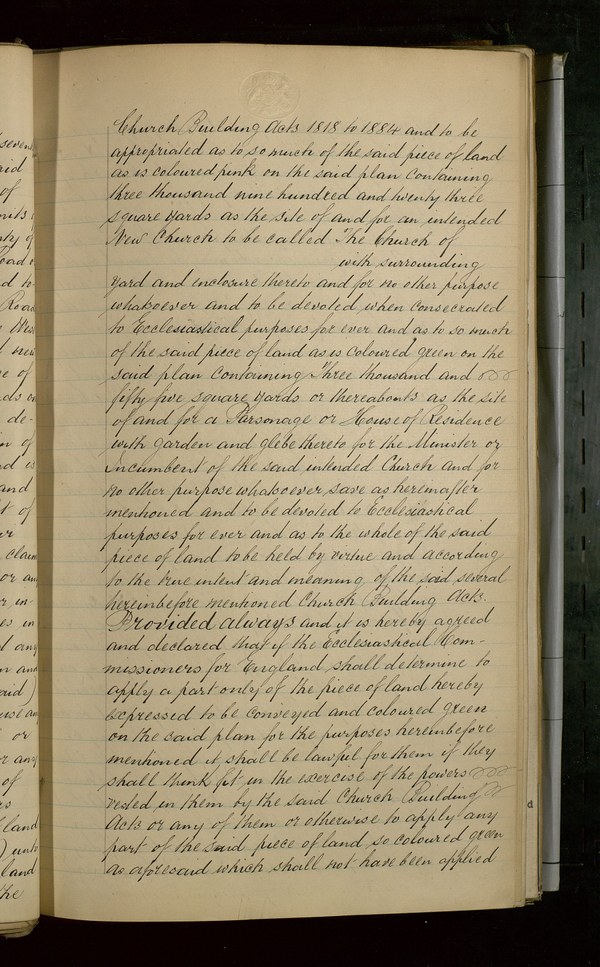 Church Building Acts 1818 to 1884 and to be
appropriated as to so much of the said piece of land
as is coloured pink on the said plan containing
three thousand nine hundred and twenty three
square yards as the site of and for an intended
New Church to be called The Church of
with surrounding
yard and enclosure thereto and for no other purpose
whatsoever and to be devoted when consecrated
to Ecclesiastical purposes for ever and as to so much
of the said piece of land as is coloured green on the
said plan containing Three thousand and
fifty five square yards or thereabouts as the site
of and for a Parsonage or House of Residence
with garden and glebe thereto for the Minister or
Incumbent of the said intended Church and for
no other purpose whatsoever save as hereinafter
mentioned and to be devoted to Ecclesiastical
purposes for ever and as to the whole of the said
piece of land to be held by virtue and according
to the true intent and meaning of the said several
hereinbefore mentioned Church Building Acts.
Provided always and it is hereby agreed
and declared that if the Ecclesiastical Com-
missioners for England shall determine to
apply a part only of the piece of land hereby
expressed to be conveyed and coloured green
on the said plan for the purposes hereinbefore
mentioned it shall be lawful for them if they
shall think fit in the exercise of the powers
vested in them by the said Church Building
Acts or any of them or otherwise to apply any
part of the said piece of land so coloured green
as aforesaid which shall not have been applied